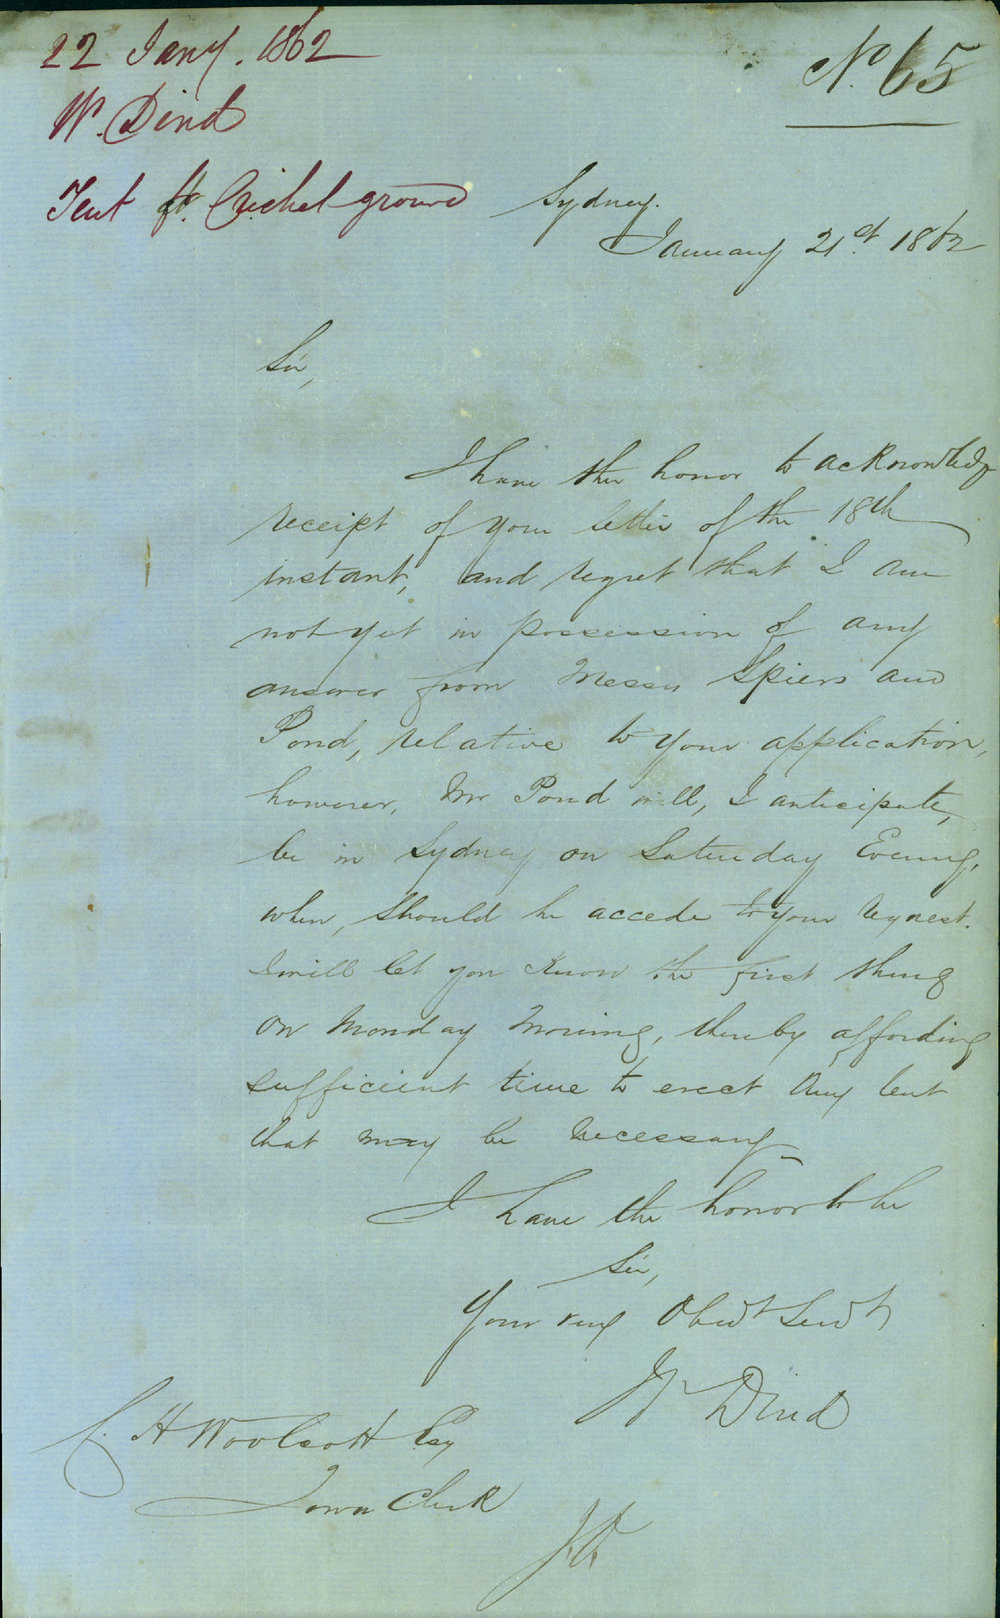 22 Jany. 1862
No. 65
W. Dind
Tent fr. Cricket ground
Sydney.
January 21st. 1862
Sir,
I have the honor to acknowledge
receipt of your letter of the 18th
instant, and regret that I am
not yet in possession of any
answer from Messrs Spiers and
Pond, relative to your application,
however, Mr Pond will, I anticipate,
be in Sydney on Saturday Evening,
when, should he accede to your request.
I will let you know the first thing
on Monday Morning, thereby affording
sufficient time to erect any tent
that may be necessary
I have the honor to be
Sir,
Your very Obedt Servt
W Dind
C. H Woolcott Esq
Town Clerk